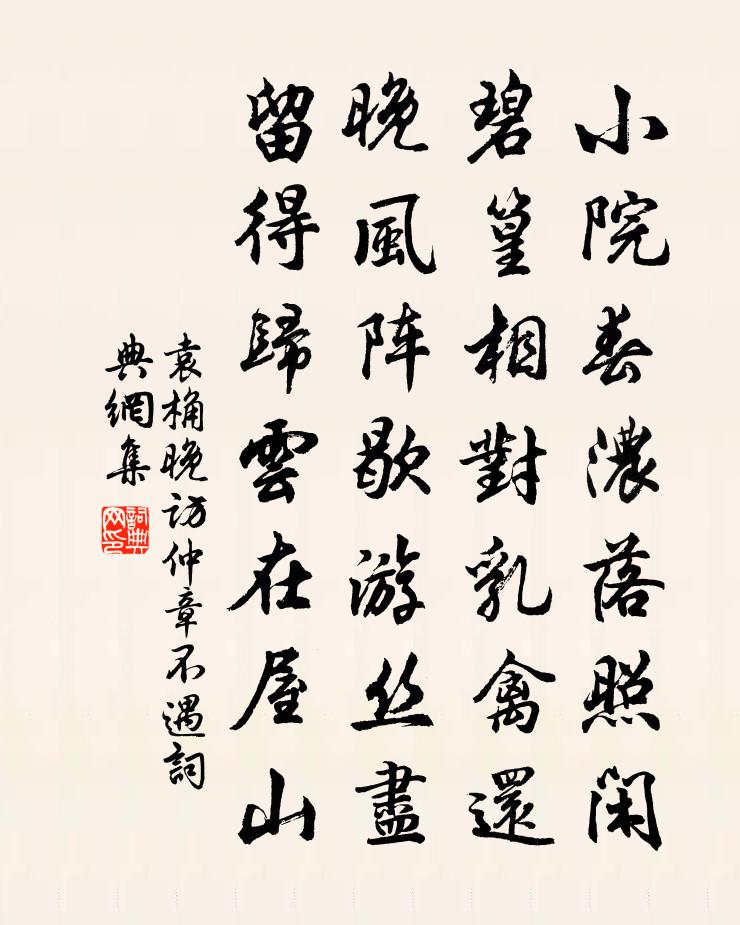 小院春濃落照閑
碧篁相對乳禽還
晚風阵歇游丝盡
留得歸雲在屋山
袁桷晚访仲章不遇詞
典網集
詞典
网印